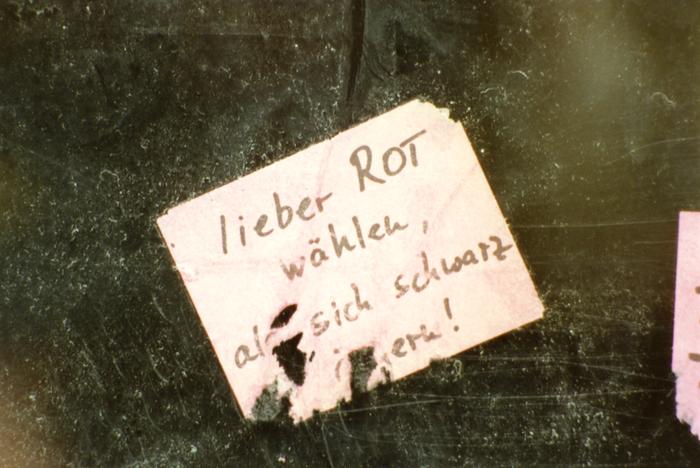 lieber ROT
wählen,
sich schwarz